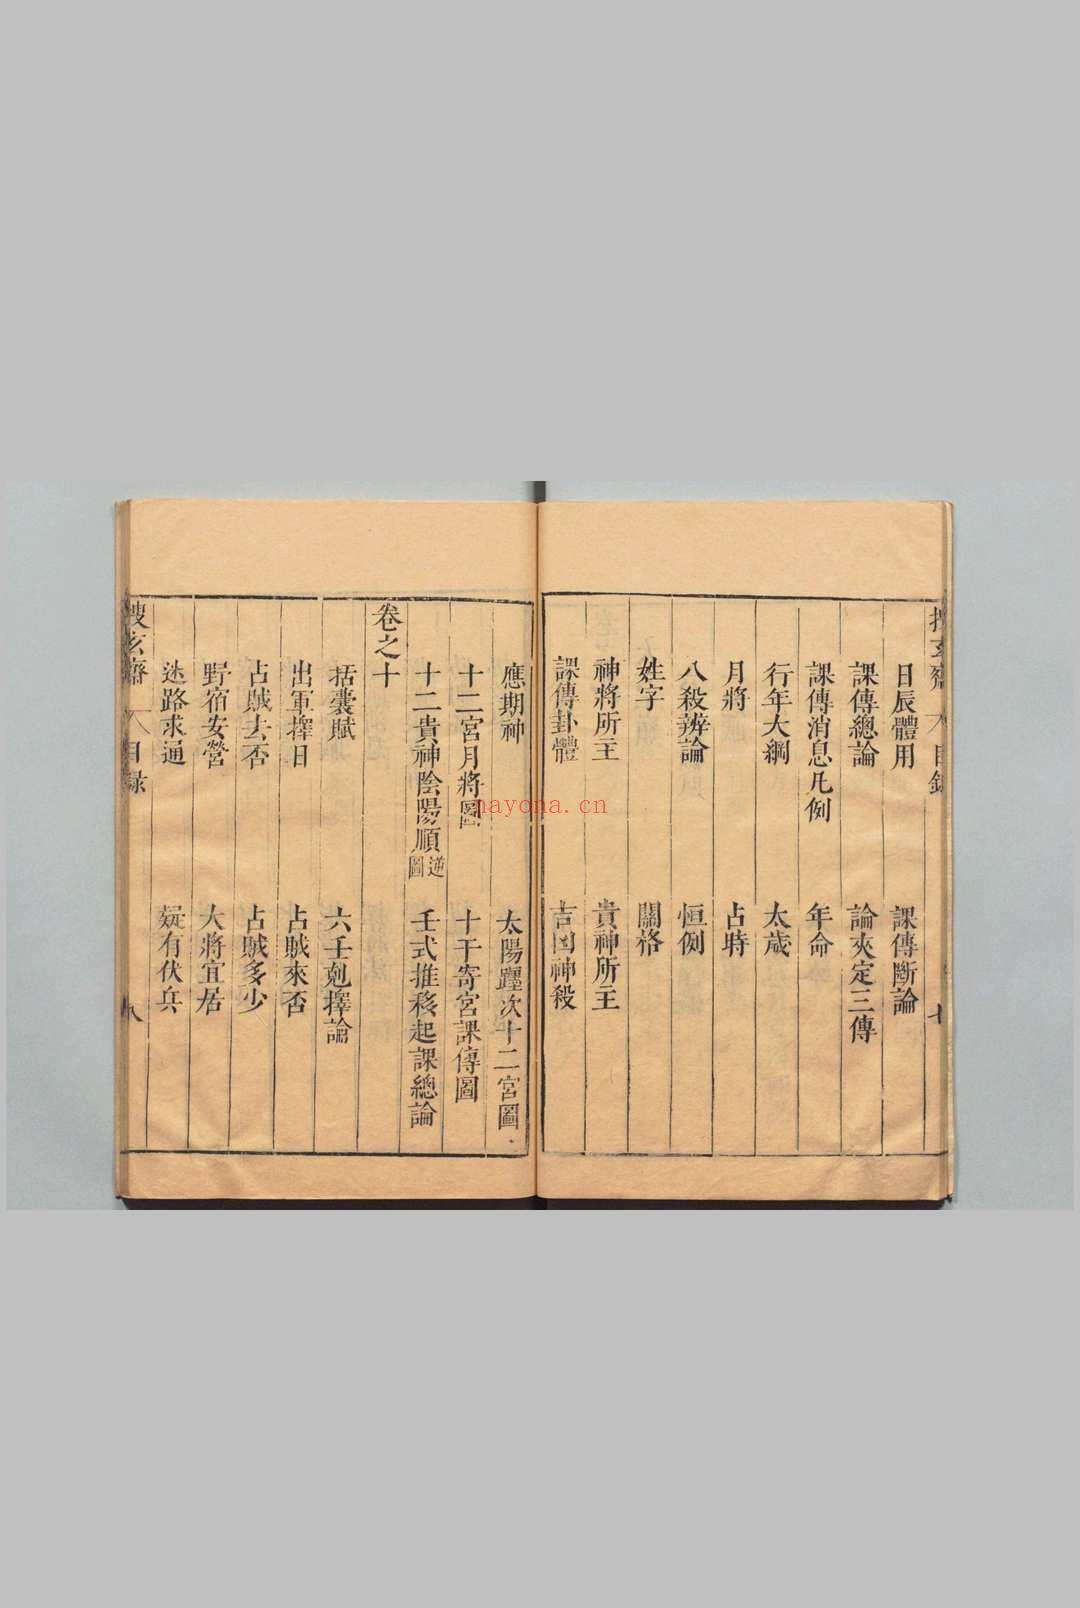 搜玄齋 目錄 七
日辰體用 課傳斷論
課傳總論 論夾定三傳
課傳消息凡例 年命
行年大綱 太歲
月將 占時
八殺辨論 恒例
姓字 關格
神將所主 貴神所主
課傳卦體 吉凶神殺
應期神 太陽躔次十二宮圖
十二宮月將圖 十干寄宮課傳圖
十二貴神陰陽順逆圖 壬式推移起課總論
卷之十
括囊賦 六壬兙擇論
出軍擇日 占賊來否
占賊去否 占賊多少
野宿安營 大將宜居
迯路求通 疑有伏兵
搜玄齋 目錄 八
nayona.cn